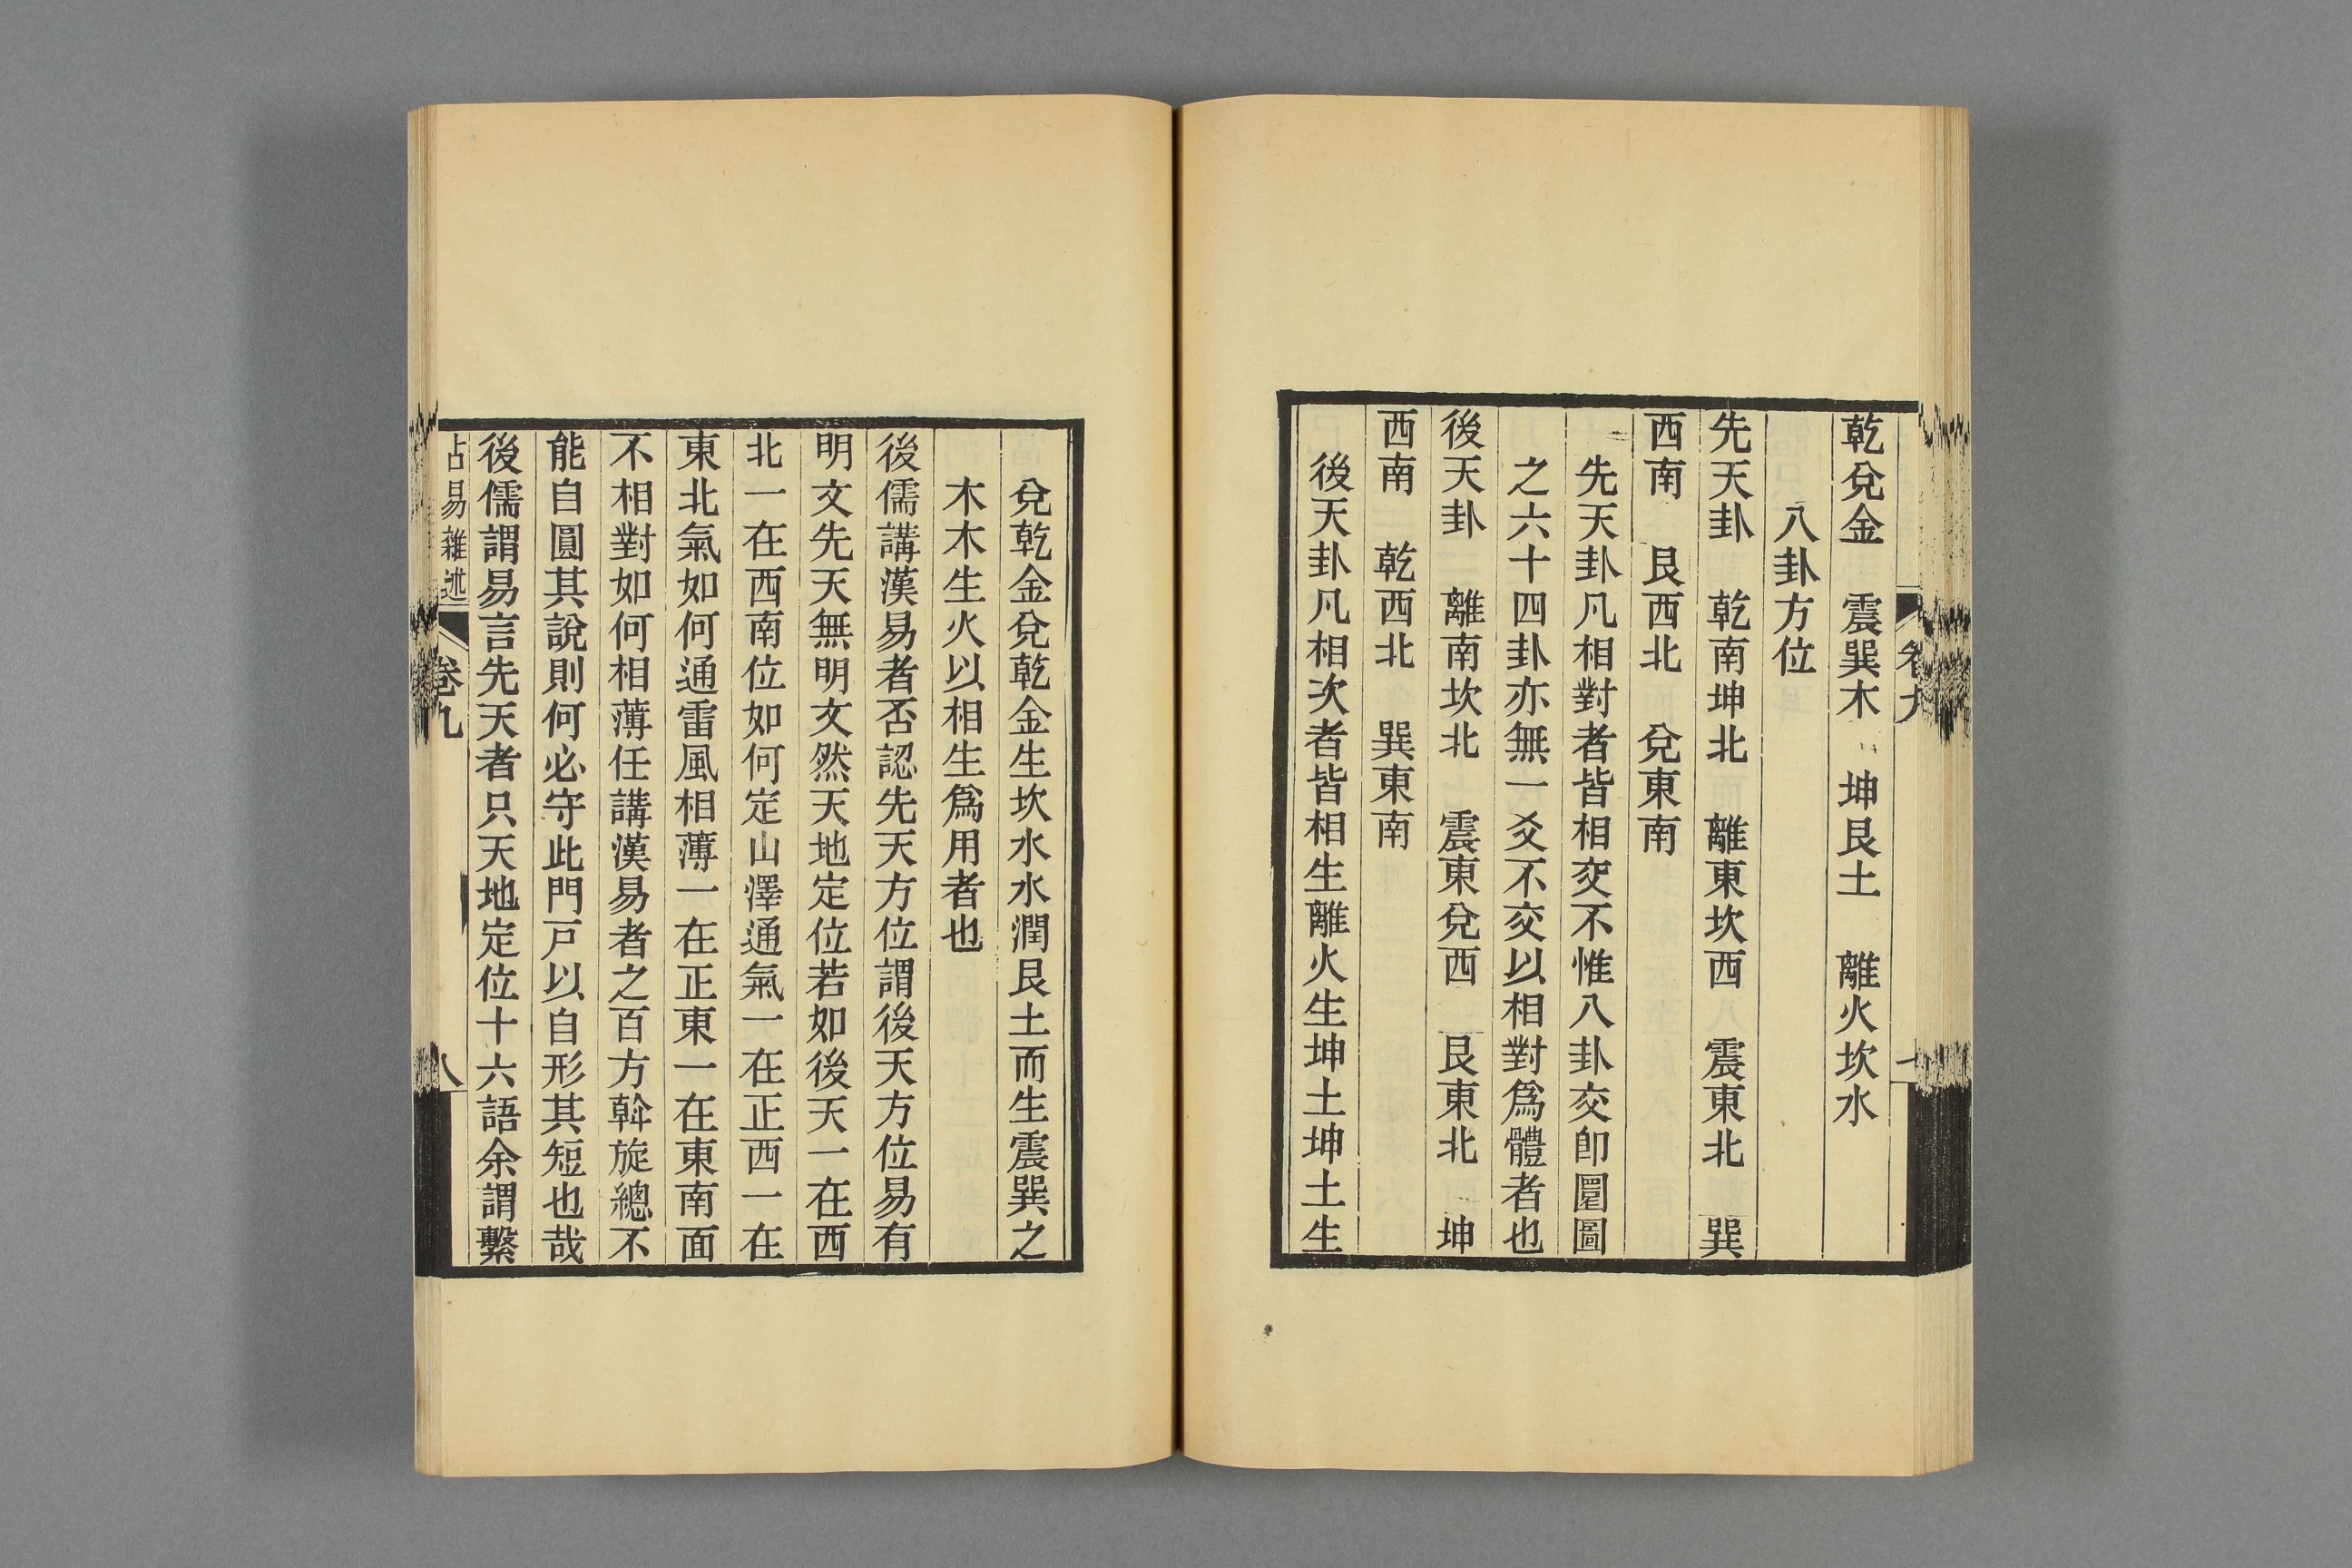 乾兌金　震巽木　坤艮土　離火坎水
八卦方位
先天卦　乾南坤北　離東坎西　震東北　巽
西南　艮西北　兌東南
先天卦凡相對者皆相交不惟八卦交卽圓圖
之六十四卦亦無一爻不交以相對爲體者也
後天卦　離南坎北　震東兌西　艮東北　坤
西南　乾西北　巽東南
後天卦凡相次者皆相生離火生坤土坤土生
兌乾金兌乾金生坎水水潤艮土而生震巽之
木木生火以相生爲用者也
後儒講漢易者否認先天方位謂後天方位易有
明文先天無明文然天地定位若如後天一在西
北一在西南位如何定山澤通氣一在正西一在
東北氣如何通雷風相薄一在正東一在東南面
不相對如何相薄任講漢易者之百方斡旋總不
能自圓其說則何必守此門戸以自形其短也哉
後儒謂易言先天者只天地定位十六語余謂繫
占易雜述
卷九
八